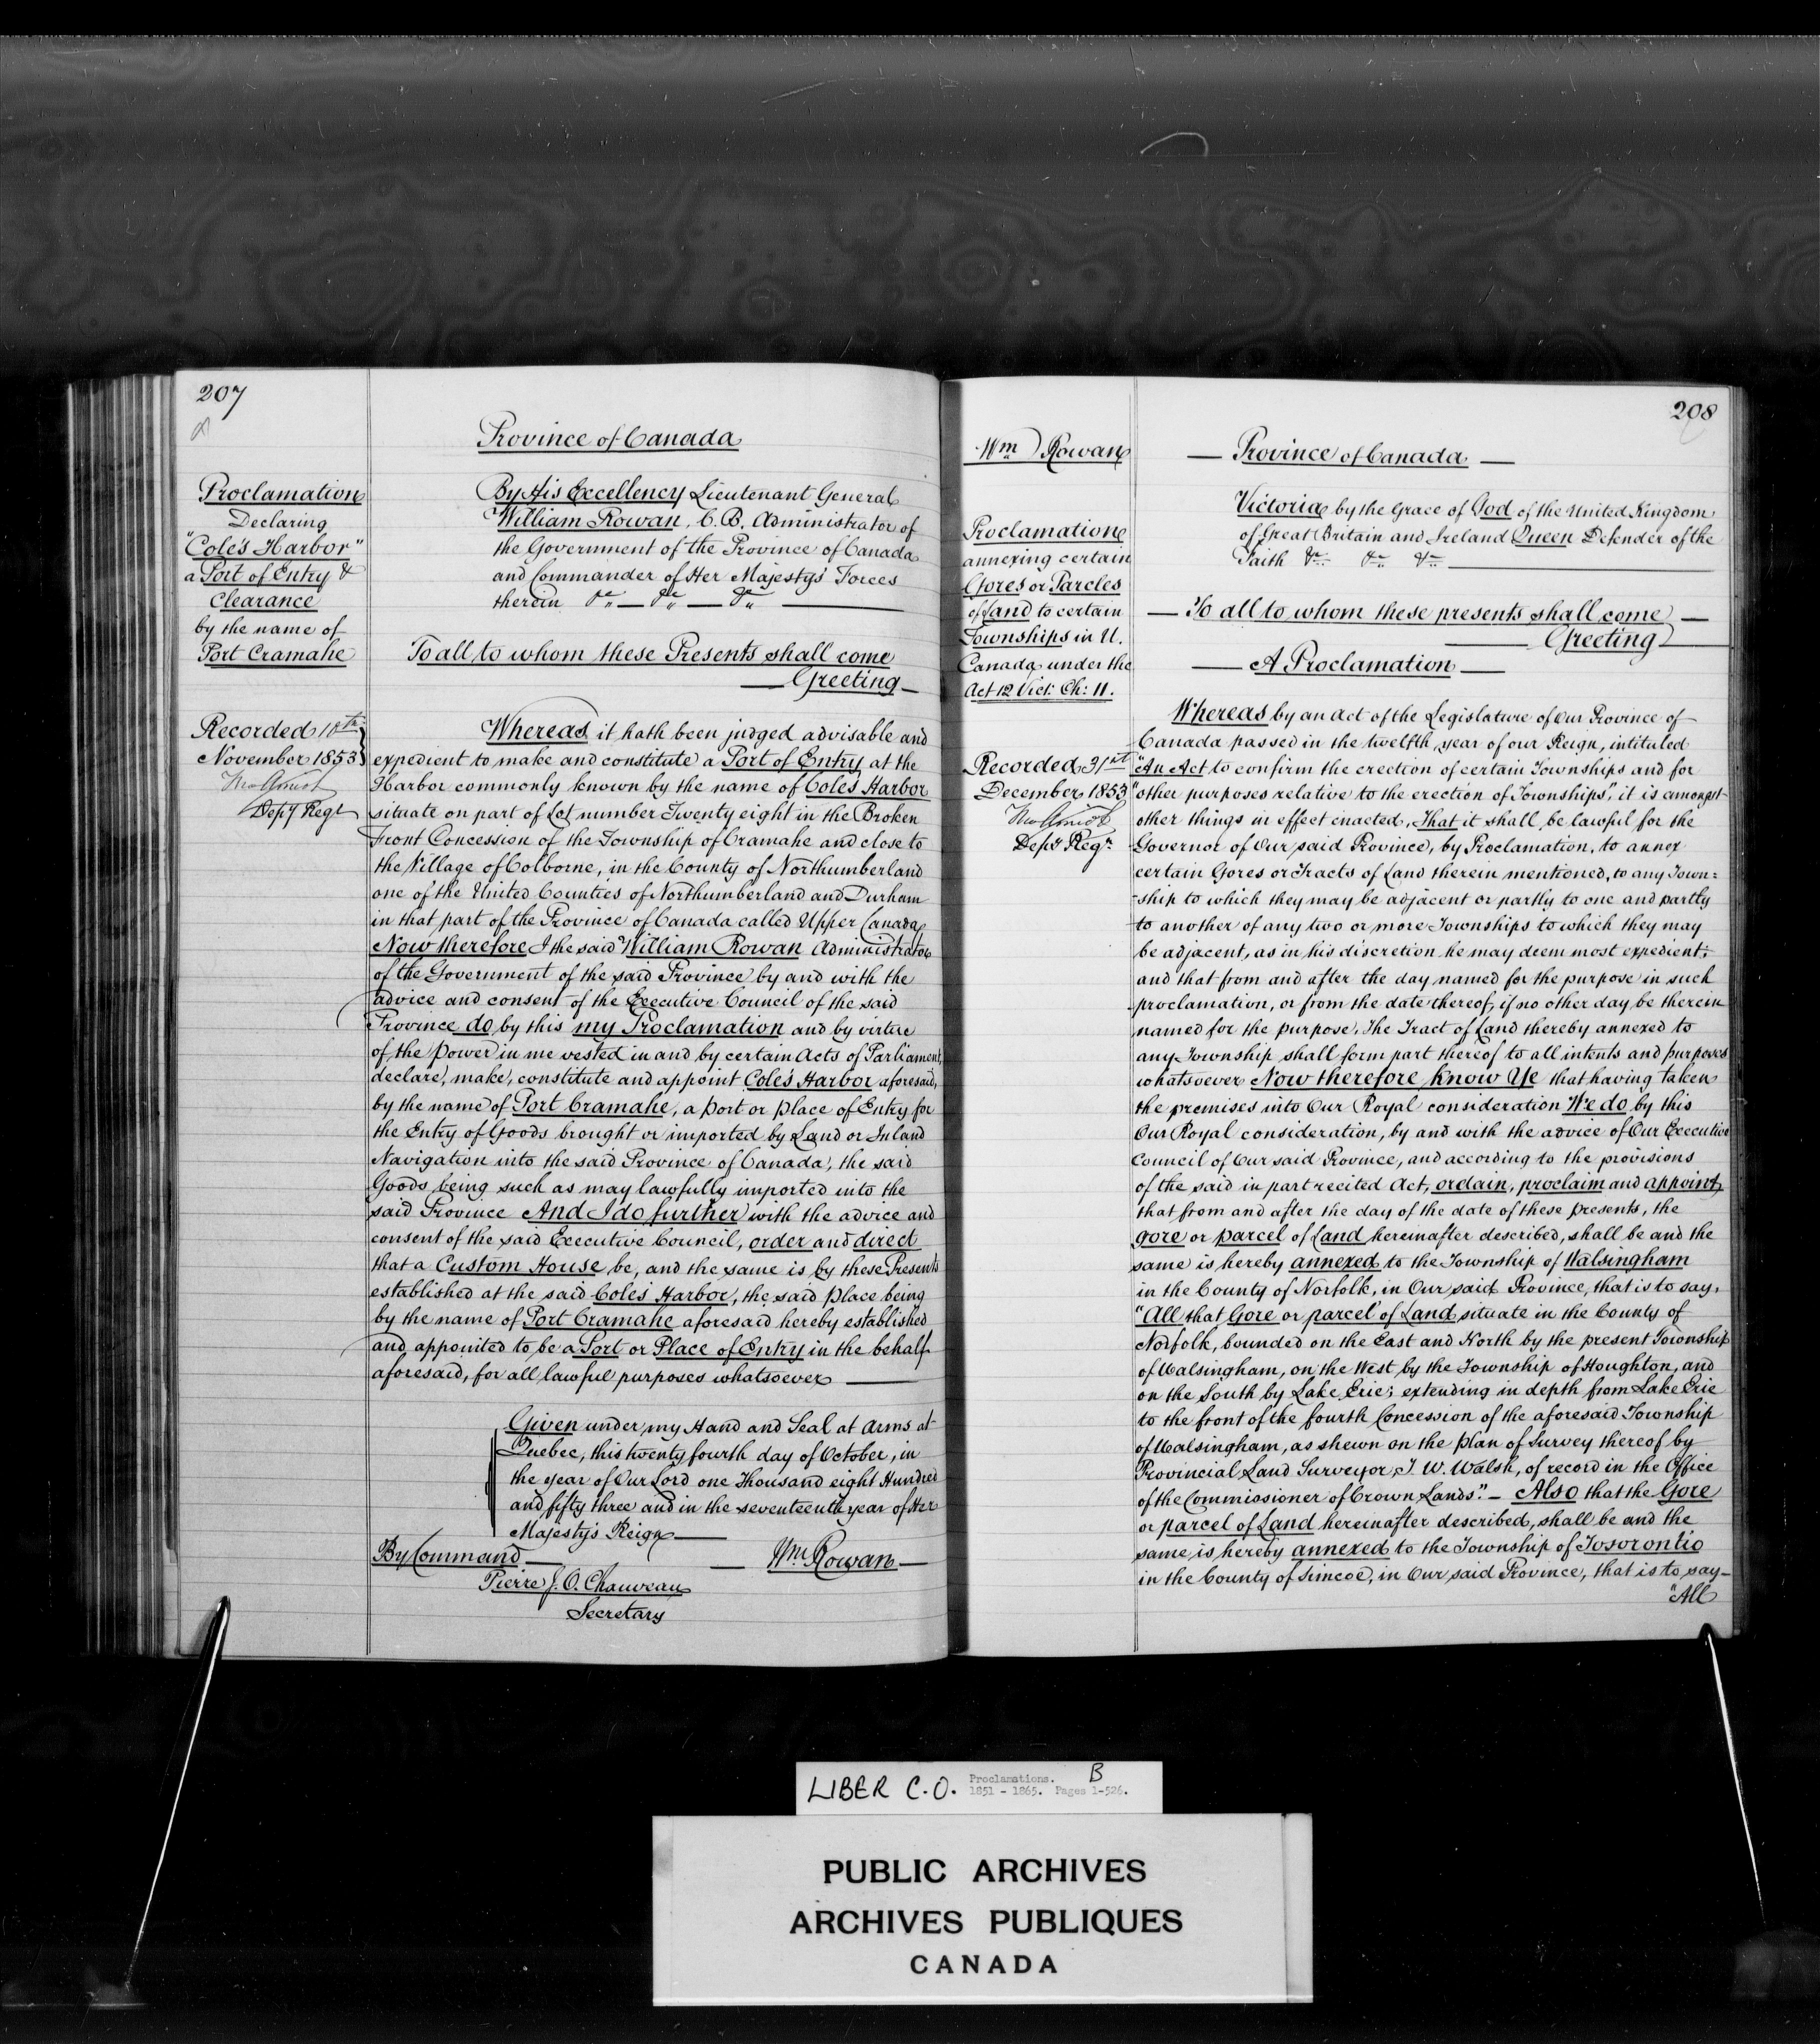 207
Province of Canada
Proclamation
Declaring
"Cole's Harbor"
a Port of Entry &
Clearance
by the name of
Port Cramahe
Recorded 18th
November 1853
Depy Regt
By His Excellency Lieutenant General
William Rowan, C.B. Administrator of
the Government of the Province of Canada
and Commander of Her Majesty's Forces
therein &c — &c — &c —
To all to whom these Presents shall come
— Greeting —
Whereas it hath been judged advisable and
expedient to make and constitute a Port of Entry at the
Harbor commonly known by the name of Coles Harbor
situate on part of Lot number Twenty eight in the Broken
Front Concession of the Township of Cramahe and close to
the Village of Colborne, in the County of Northumberland
one of the United Counties of Northumberland and Durham
in that part of the Province of Canada called Upper Canada
Now therefore I the said William Rowan Administrator
of the Government of the said Province by and with the
advice and consent of the Executive Council of the said
Province do by this my Proclamation and by virtue
of the Power in me vested in and by certain Acts of Parliament,
declare, make, constitute and appoint Cole's Harbor aforesaid,
by the name of Port Cramahe, a Port or Place of Entry for
the Entry of Goods brought or imported by Land or Inland
Navigation into the said Province of Canada, the said
Goods being such as may lawfully imported into the
said Province And I do further with the advice and
consent of the said Executive Council, order and direct
that a Custom House be, and the same is by these Presents
established at the said Coles Harbor, the said place being
by the name of Port Cramahe aforesaid hereby established
and appointed to be a Port or Place of Entry in the behalf
aforesaid, for all lawful purposes whatsoever —
Given under my Hand and Seal at Arms at
Quebec, this twenty fourth day of October, in
the year of Our Lord one Thousand eight Hundred
and fifty three and in the seventeenth year of Her
Majesty's Reign —
By Command —
— Wm. Rowan —
Pierre J. O. Chauveau
Secretary
208
Wm Rowan
— Province of Canada —
Proclamation
annexing certain
Gores or Parcles
of Land to certain
Townships in U.
Canada under the
Act 12 Vict: Ch: 11.
Recorded 31st
December 1853
Depy Regr
Victoria by the Grace of God of the United Kingdom
of Great Britain and Ireland Queen Defender of the
Faith &c &c &c —
— To all to whom these presents shall come —
— Greeting —
— A Proclamation —
Whereas by an Act of the Legislature of Our Province of
Canada passed in the twelfth year of our Reign, intituled
"An Act to confirm the erection of certain Townships and for
"other purposes relative to the erection of Townships", it is amongst
other things in effect enacted, That it shall be lawful for the
Governor of Our said Province, by Proclamation, to annex
certain Gores or Tracts of Land therein mentioned, to any Town=
-ship to which they may be adjacent or partly to one and partly
to another of any two or more Townships to which they may
be adjacent, as in his discretion he may deem most expedient;
and that from and after the day named for the purpose in such
proclamation, or from the date thereof, if no other day be therein
named for the purpose, the Tract of Land thereby annexed to
any Township shall form part thereof to all intents and purposes
whatsoever Now therefore know Ye that having taken
the premises into Our Royal consideration We do by this
Our Royal consideration, by and with the advice of Our Executive
Council of Our said Province, and according to the provisions
of the said in part recited Act, ordain, proclaim and appoint,
that from and after the day of the date of these presents, the
gore or parcel of Land hereinafter described, shall be and the
same is hereby annexed to the Township of Walsingham
in the County of Norfolk, in Our said Province, that is to say,
"All that Gore or parcel of Land situate in the County of
Norfolk, bounded on the East and North by the present Township
of Walsingham, on the West by the Township of Houghton, and
on the South by Lake Erie; extending in depth from Lake Erie
to the front of the fourth Concession of the aforesaid Township
of Walsingham, as shewn on the plan of Survey thereof by
Provincial Land Surveyor, T. W. Walsh, of record in the Office
of the Commissioner of Crown Lands". — Also that the Gore
or parcel of Land hereinafter described, shall be and the
same is hereby annexed to the Township of Tosorontio
in the County of Simcoe, in Our said Province, that is to say —
"All
LIBER C.O. Proclamations. B
1851 - 1865. Pages 1-526.
PUBLIC ARCHIVES
ARCHIVES PUBLIQUES
CANADA